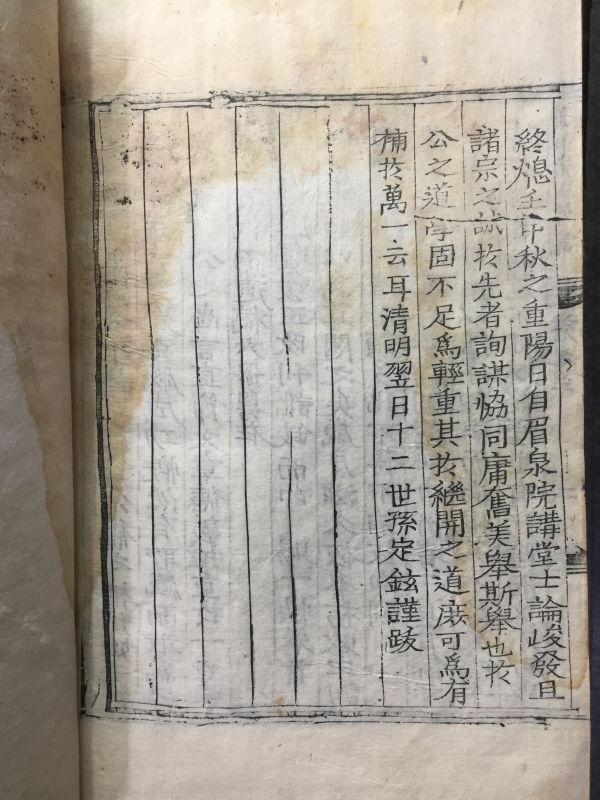 終熄壬卯秋之重陽日自眉泉院講堂士論峻發且
諸宗之誠扵先者詢謀恊同庸奮美舉斯舉也扵
公之道學固不足爲輕重其扵繼開之道庶可爲有
補扵萬一云耳清明翌日十二世孫定鉉謹跋